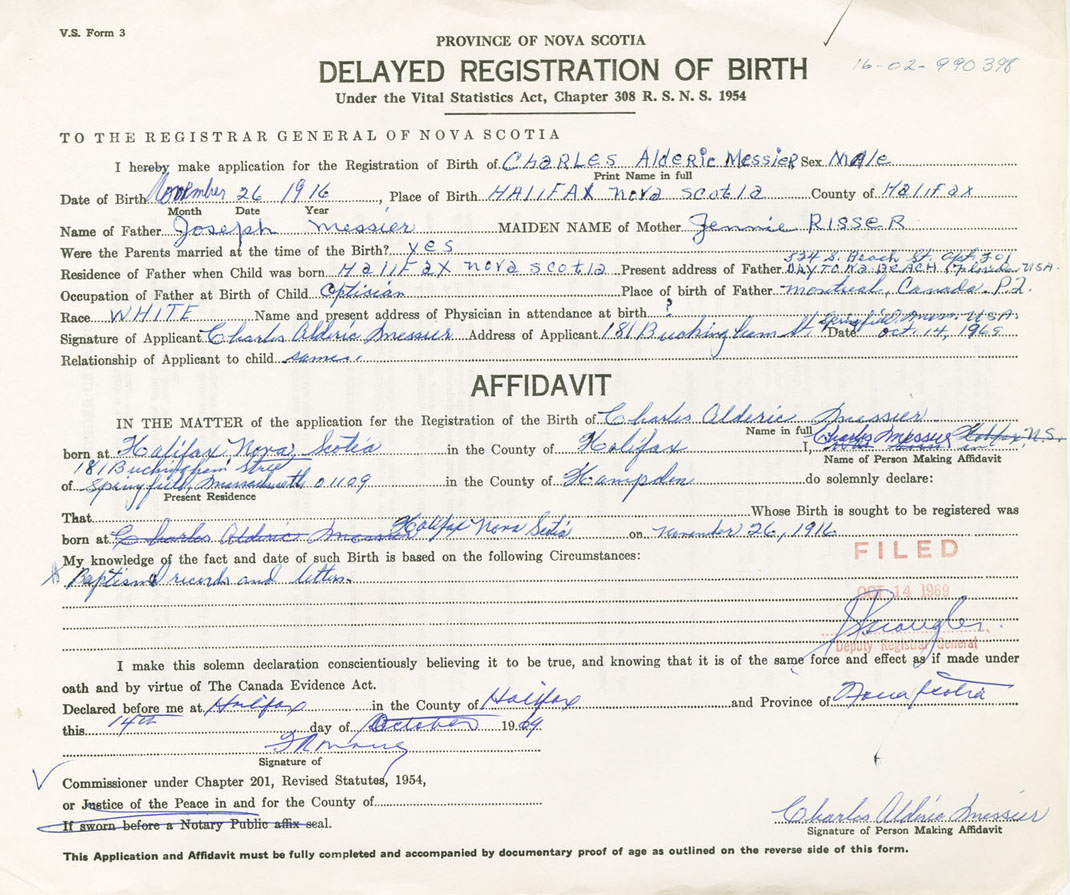 V.S. Form 3
PROVINCE OF NOVA SCOTIA
DELAYED REGISTRATION OF BIRTH
16-02-990398
Under the Vital Statistics Act, Chapter 308 R. S. N. S. 1954
TO THE REGISTRAR GENERAL OF NOVA SCOTIA
I hereby make application for the Registration of Birth of CHARLES Alderic Messier Sex Male
Print Name in full
Date of Birth November 26 1916, Place of Birth HALIFAX Nova Scotia County of Halifax
Month Date Year
Name of Father Joseph Messier MAIDEN NAME of Mother Jennie RISSER
Were the Parents married at the time of the Birth? yes
534 S. Beach St. Apt. 301
Residence of Father when Child was born Halifax Nova Scotia Present address of Father DAYTONA BEACH Florida. USA.
Occupation of Father at Birth of Child Optisian Place of birth of Father Montreal, Canada. P.Q.
Race WHITE Name and present address of Physician in attendance at birth ?
Springfield Mass. U.S.A.
Signature of Applicant Charles Alderic Messier Address of Applicant 181 Buckingham St. Date Oct. 14, 1969
Relationship of Applicant to child same.
AFFIDAVIT
IN THE MATTER of the application for the Registration of the Birth of Charles Alderic Messier
Name in full
born at Halifax Nova Scotia in the County of Halifax I, Charles Messier Halifax N.S.
Name of Person Making Affidavit
181 Buckingham Street
of Springfield, Massachusetts 01109 in the County of Hampden do solemnly declare:
Present Residence
That Whose Birth is sought to be registered was
born at Charles Alderic Messier Halifax Nova Scotia on November 26, 1916
My knowledge of the fact and date of such Birth is based on the following Circumstances:
FILED
Baptismal records and letters.
OCT 14 1969
Deputy Registrar General
I make this solemn declaration conscientiously believing it to be true, and knowing that it is of the same force and effect as if made under
oath and by virtue of The Canada Evidence Act.
Declared before me at Halifax in the County of Halifax and Province of Nova Scotia
this 14th day of October 1969
Signature of
Commissioner under Chapter 201, Revised Statutes, 1954,
or Justice of the Peace in and for the County of
If sworn before a Notary Public affix seal.
Charles Alderic Messier
Signature of Person Making Affidavit
This Application and Affidavit must be fully completed and accompanied by documentary proof of age as outlined on the reverse side of this form.